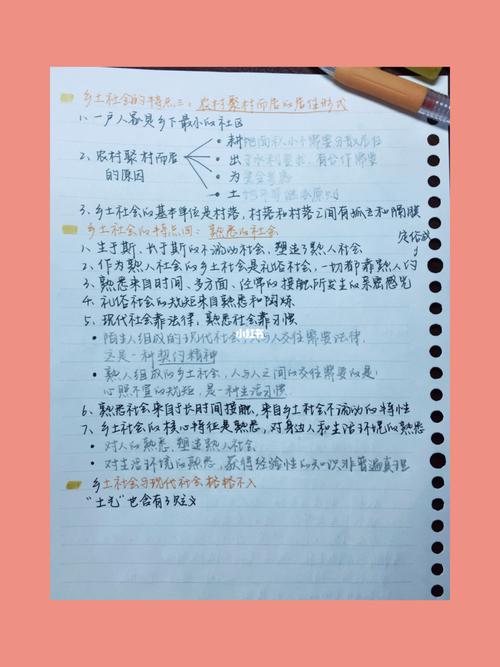 乡土社会的特点三：农村聚村而居的居住形式
1、一户人家是乡下最小的社区
2、农村聚村而居的原因
耕地面积小不需要分散居住
出于水利要求，有合作需要
为安全考虑
土地平等继承原则
3、乡土社会的基本单位是村落，村落和村落之间有孤立和隔膜
乡土社会的特点四：熟悉的社会
1、生于斯、长于斯的不流动社会，塑造了熟人社会
2、作为熟人社会的乡土社会是礼俗社会，一切都靠熟人的
3、熟悉来自时间、多方面、经常的接触所发生的亲密感觉
4、礼俗社会的规矩来自熟悉和
5、现代社会靠法律，熟悉社会靠习惯
陌生人组成的现代社会，人与人交往需要法律，
这是一种契约精神
熟人组成的乡土社会，人与人之间的交往需要的是
心照不宣的规矩，是一种生活习惯
6、熟悉社会来自于长时间接触，来自乡土社会不流动的特性
7、乡土社会的核心特征是熟悉，对身边人和生活环境的熟悉
对人的熟悉，塑造熟人社会
对生活环境的熟悉，获得经验性的知识非普遍真理
乡土社会与现代社会格格不入
"土气"也含有了贬义
小红书